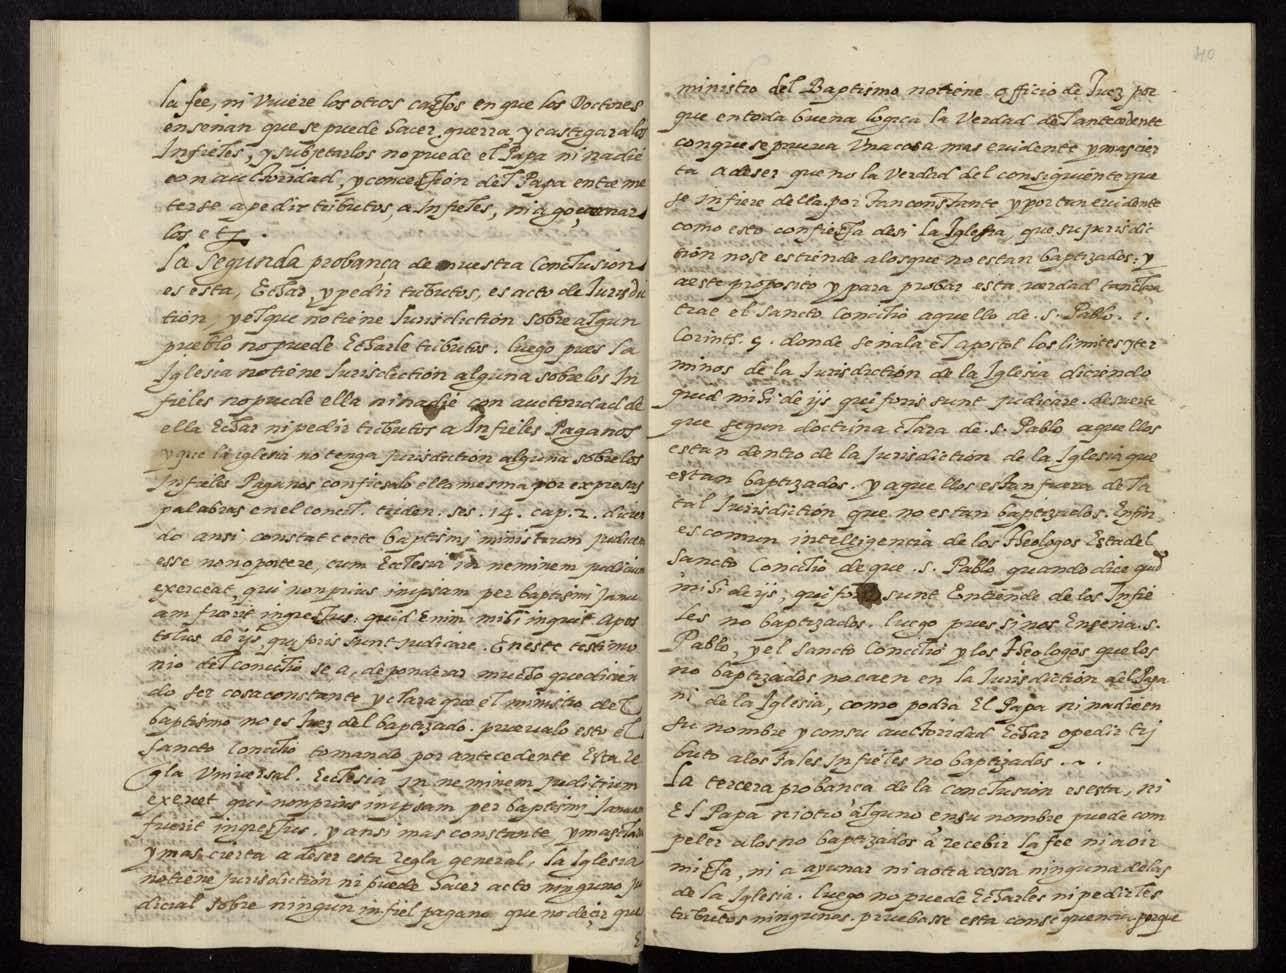 la fee, ni vuiere los otros cassos en que los Doctores
enseñan que se puede hacer guerra, y castigar a los
Infieles, y subjetarlos no puede el Papa ni nadie
con auctoridad, y concession del Papa entreme
terse a pedir tributos, a Infieles, ni a gouernar
los etc.
La segunda probança de nuestra Conclusion
es esta, Echar, y pedir tributos, es acto de Jurisdi
tion, y el que no tiene Jurisdiction sobre algun
pueblo no puede Echarle tributos. luego pues la
Iglesia no tiene Jurisdiction alguna sobre los In
fieles no puede ella ni nadie con auctoridad de
ella Echar ni pedir tributos a Infieles Paganos
y que la iglesia no tenga jurisdiction alguna sobre los
Infieles Paganos confiesalo ella mesma por expresas
palabras en el concil. triden. ses. 14. cap. 2. dicien
do ansi, constat certe baptismi ministrum judicem
esse non oportere, cum Ecclesia in neminem judicium
exerceat, qui non prius in ipsam per baptismi Janu
am fuerit ingressus: quid Enim mihi inquit Apos
tolus de ijs, qui foris sunt judicare. En este testimo
nio del concilio se a, de ponderar mucho que dicien
do ser cosa constante y clara que el ministro del
baptismo no es Juez del baptizado. prueualo esto el
Sancto Concilio tomando por antecedente Esta re
gla Vniuersal. Ecclesia in neminem judicium
exercet qui non prius in ipsam per baptismi Januam
fuerit ingressus. y ansi mas constante y mas clara
y mas cierta a de ser esta regla general, la Iglesia
no tiene jurisdiction ni puede hacer acto ninguno ju
dicial sobre ningun infiel pagano que no deçir que
40
ministro del Baptismo no tiene officio de Juez por
que en toda buena logica la Verdad del antecedente
con que se prueua Vna cosa mas euidente y mas cier
ta a de ser que no la verdad del consiguiente que
se infiere della. por tan constante y por tan euidente
como esto confiessa de si la Iglesia, que su jurisdic
tion no se estiende a los que no estan baptizados: y
a este proposito y para probar esta verdad tan clara
trae el Sancto Concilio aquello de .S. Pablo. 1.
Corinth. 5. donde señala el apostol los limites y ter
minos de la Jurisdiction de la Iglesia diciendo
quid mihi de ijs qui foris sunt judicare. de suerte
que segun doctrina clara de .S. Pablo aquellos
estan dentro de la Jurisdiction de la Iglesia que
estan baptizados. y aquellos estan fuera de la
tal Jurisdiction que no estan baptizados. Enfin
es comun intelligencia de los Theologos Esta del
Sancto Concilio de que .S. Pablo quando dice quid
mihi de ijs, qui foris sunt Entiende de los Infie
les no baptizados. luego pues si nos Enseña .S.
Pablo, y el Sancto Concilio y los Theologos que los
no baptizados no caen en la Jurisdiction del Papa
ni de la Iglesia, como podra El Papa ni nadie en
su nombre y con su auctoridad Echar o pedir tri
buto a los tales Infieles no baptizados.
La tercera probança de la conclusion es esta, ni
El Papa ni otro alguno en su nombre puede com
peler a los no baptizados a recebir la fee ni a oir
missa, ni a ayunar ni a otra cossa ninguna de las
de la Iglesia. luego no puede Echarles ni pedirles
tributos ningunos. pruebasse esta consequencia. porque